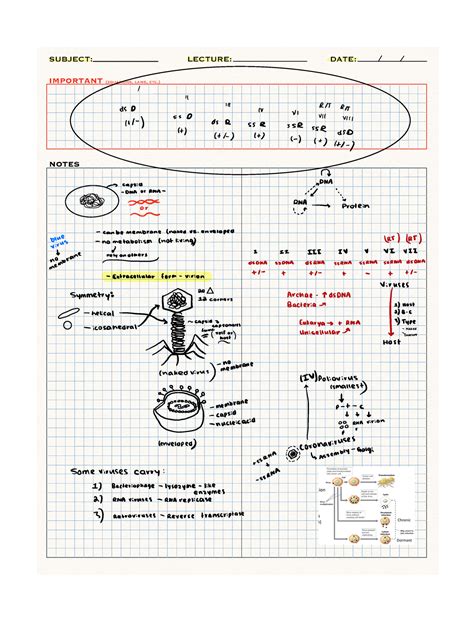 SUBJECT: LECTURE: DATE: / /
IMPORTANT
II IV VI RT RT
ds D ss D ds R ss R ss R VII VIII
(+/-) (+) (+/-) (+) (-) ss R dsD
(+) (+/-)
NOTES
capsid
DNA or RNA
or
DNA
RNA Protein
blue virus
no membrane
- can be membrane (naked vs. enveloped
- no metabolism (not living)
rely on others
- Extracellular form - virion
(RT) (RT)
I II III IV V VI VII
dsDNA ssDNA dsRNA ssRNA ssRNA ssRNA dsDNA
+/- + +/- + - + +/-
Symmetry:
- helical
- icosahedral
20 △
12 corners
capsid
host
(naked virus)
no membrane
Archae - ↑ dsDNA
Bacteria
Eukarya → + RNA
Unicellular
Viruses
1) Host
2) B.C
3) Type
Host
- membrane
- capsid
- nucleic acid
(enveloped)
(IV) Poliovirus
(smallest)
P - + - c
RNA virion
Coronaviruses
Assembly - Golgi
-ssRNA
+ssRNA
Some viruses carry:
1) Bacteriophage - lysozyme - like
enzymes
2) RNA viruses - RNA replicase
3) Retroviruses - Reverse transcriptase
Chronic
Dormant